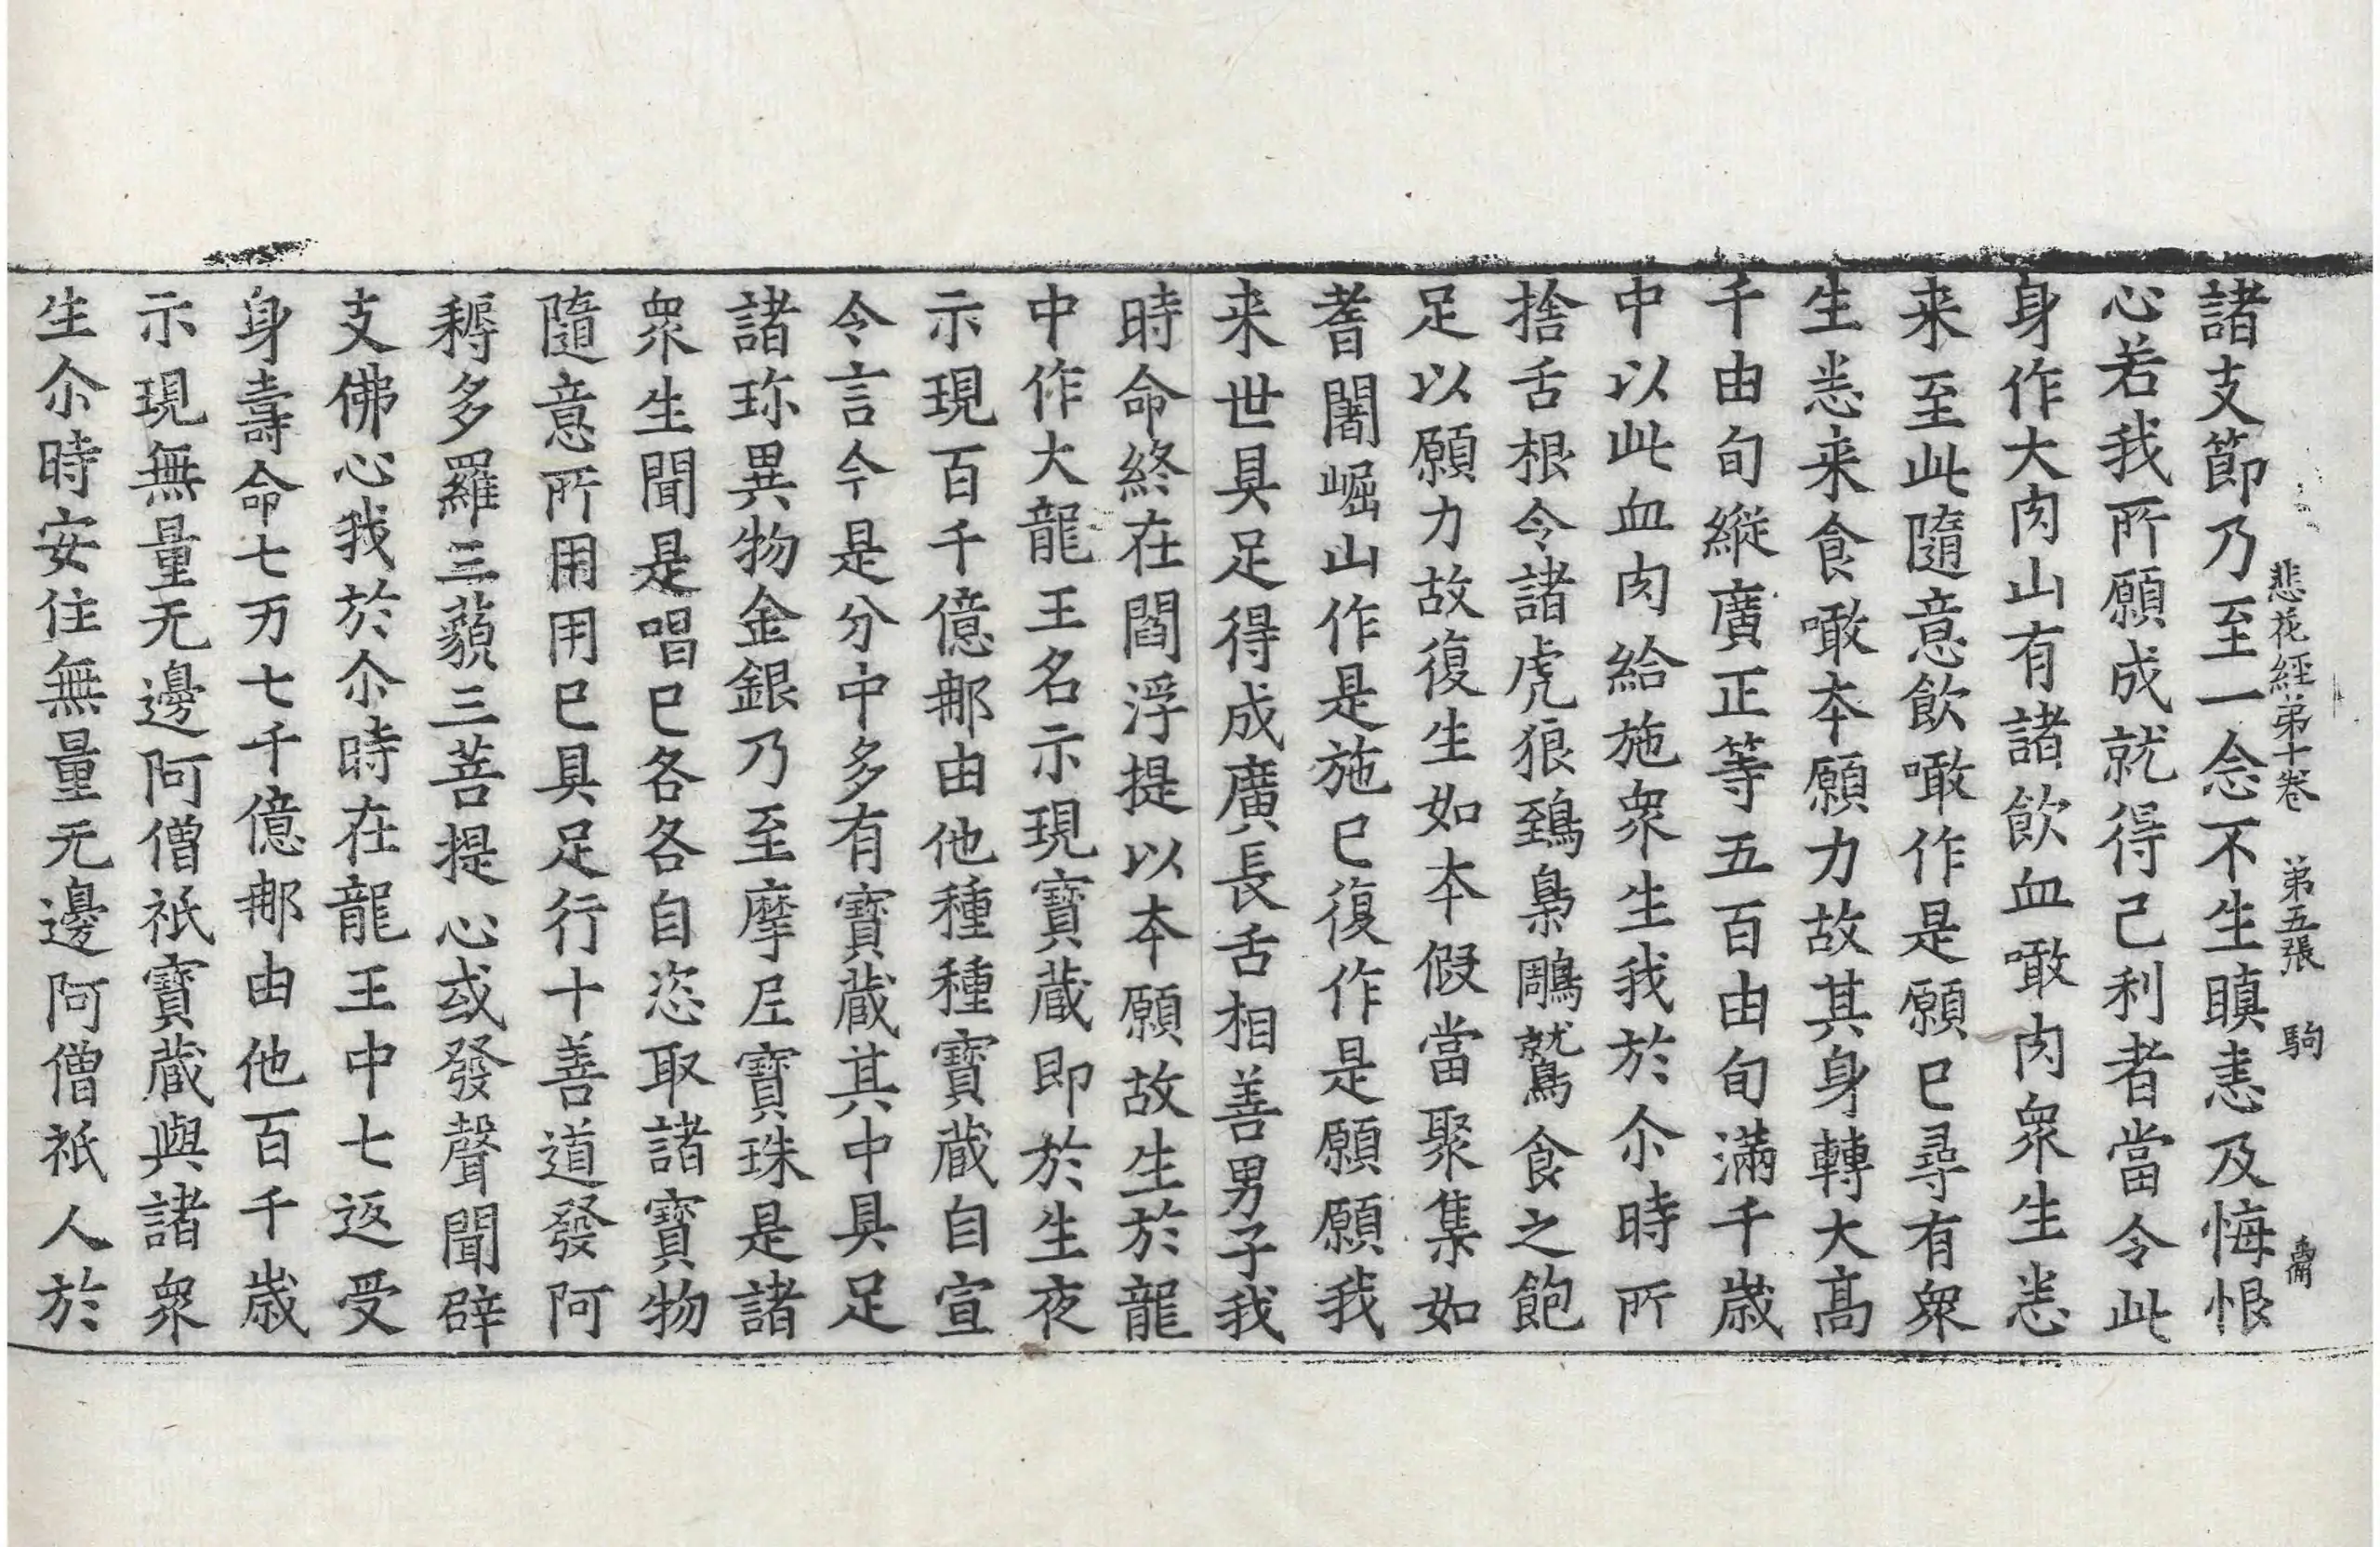 悲花經弟十卷 弟五張 駒
諸支節乃至一念不生瞋恚及悔恨
心若我所願成就得己利者當令此
身作大肉山有諸飲血噉肉衆生悉
来至此隨意飲噉作是願已尋有衆
生悉来食噉本願力故其身轉大髙
千由旬縱廣正等五百由旬滿千歲
中以此血肉給施衆生我於尒時所
捨舌根令諸虎狼鵄梟鵰鷲食之飽
足以願力故復生如本假當聚集如
耆闍崛山作是施已復作是願願我
来世具足得成廣長舌相善男子我
時命終在閻浮提以本願故生於龍
中作大龍王名示現寶藏即於生夜
示現百千億那由他種種寶藏自宣
令言今是分中多有寶藏其中具足
諸珎異物金銀乃至摩尼寶珠是諸
衆生聞是唱已各各自恣取諸寶物
隨意所用用已具足行十善道發阿
耨多羅三藐三菩提心或發聲聞辟
支佛心我於尒時在龍王中七返受
身壽命七万七千億那由他百千歲
示現無量无邊阿僧祇寶藏與諸衆
生尒時安住無量无邊阿僧祇人於